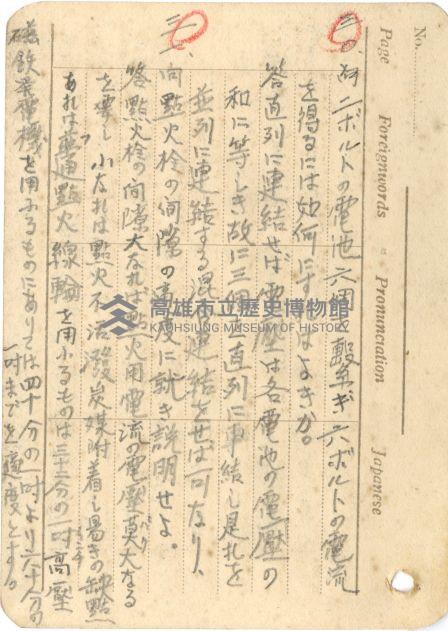 No.
Page Foreignwords Pronunciation Japanese
三〇、問 二ボルトの電池六個繋ぎ六ボルトの電流
を得るには如何にすればよきか。
答 直列に連結せば電壓は各電池の電壓の
和に等しき故に三個 直列に 結し是れを
並列に連結する混 連結をせば可なり、
三一、問 點火栓の間隙の 度に就き説明せよ。
答 點火栓の間隙大なれば點火用電流の電壓莫大なる
を要し 小なれば點火不活潑炭媒附着し易きの缺點
あれば普通點火線輪を用ふるものは三十二分の一吋高壓
磁鉄発電機を用ふるものにありては四十分の一吋より六十分の
一吋までを適度とす。
高雄市立歷史博物館
KAOHSIUNG MUSEUM OF HISTORY